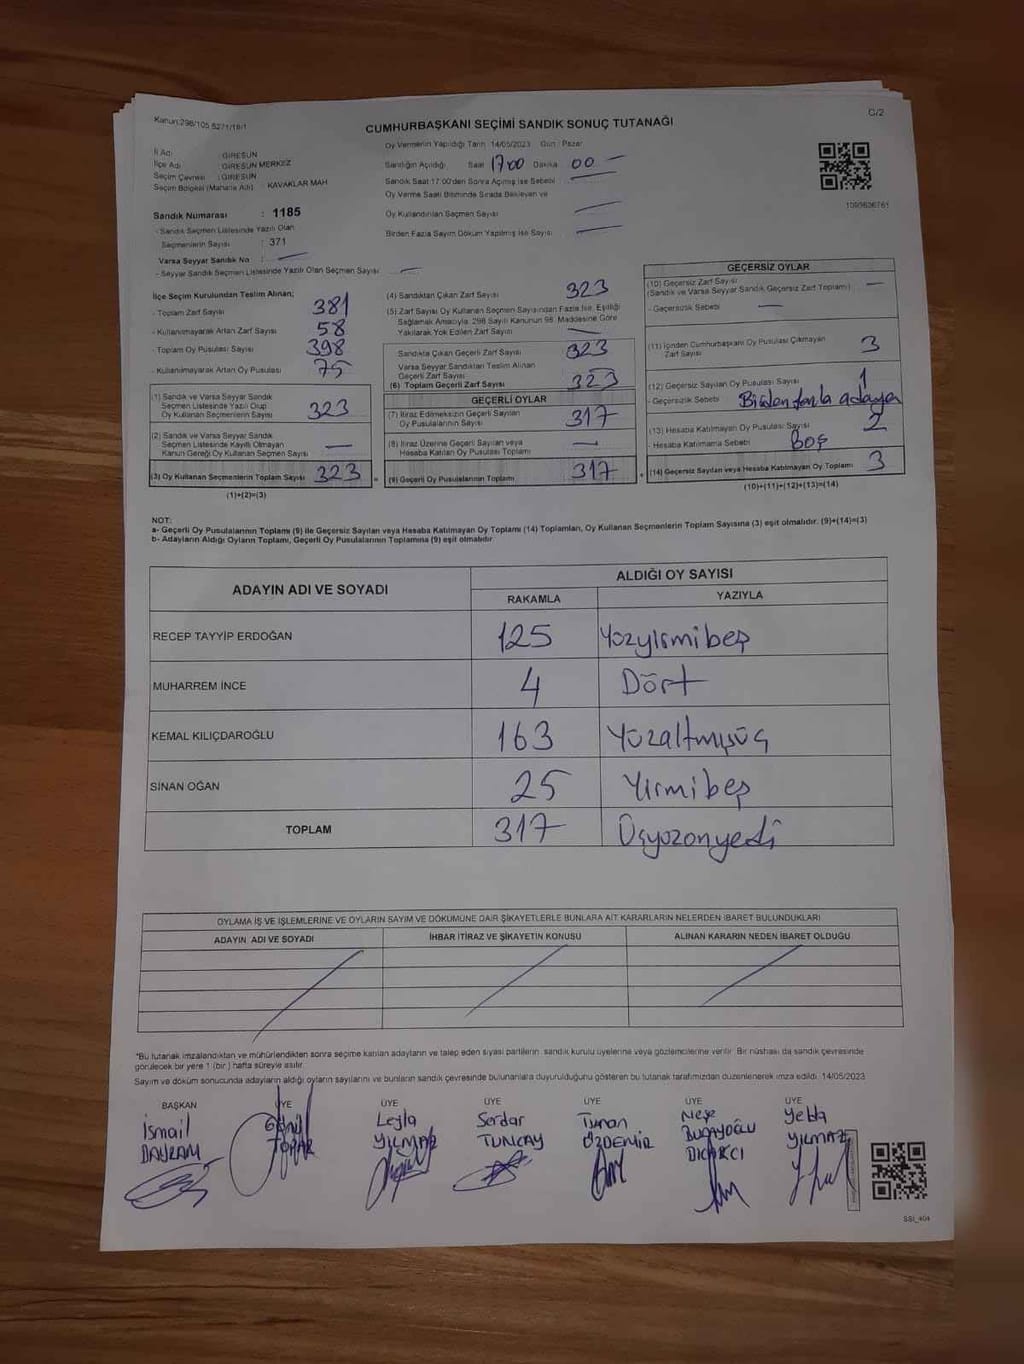 Kanun:298/105 5271/16/1
C/2
CUMHURBAŞKANI SEÇİMİ SANDIK SONUÇ TUTANAĞI
İl Adı : GİRESUN
İlçe Adı : GİRESUN MERKEZ
Seçim Çevresi : GİRESUN
Seçim Bölgesi (Mahalle Adı) KAVAKLAR MAH
Oy Vermenin Yapıldığı Tarih 14/05/2023 Gün : Pazar
Sandığın Açıldığı Saat 17:00 Dakika 00
Sandık Saat 17:00'den Sonra Açılmış İse Sebebi
Oy Verme Saati Bitiminde Sırada Bekleyen ve
Oy Kullandırılan Seçmen Sayısı
Birden Fazla Sayım Döküm Yapılmış İse Sayısı
1093626761
Sandık Numarası : 1185
- Sandık Seçmen Listesinde Yazılı Olan
Seçmenlerin Sayısı : 371
Varsa Seyyar Sandık No :
- Seyyar Sandık Seçmen Listesinde Yazılı Olan Seçmen Sayısı
İlçe Seçim Kurulundan Teslim Alınan;
- Toplam Zarf Sayısı 381
- Kullanılmayarak Artan Zarf Sayısı 58
- Toplam Oy Pusulası Sayısı 398
- Kullanılmayarak Artan Oy Pusulası 75
(1) Sandık ve Varsa Seyyar Sandık
Seçmen Listesinde Yazılı Olup
Oy Kullanan Seçmenlerin Sayısı 323
(2) Sandık ve Varsa Seyyar Sandık
Seçmen Listesinde Kayıtlı Olmayan
Kanun Gereği Oy Kullanan Seçmen Sayısı
(3) Oy Kullanan Seçmenlerin Toplam Sayısı 323
(1)+(2)=(3)
(4) Sandıktan Çıkan Zarf Sayısı 323
(5) Zarf Sayısı Oy Kullanan Seçmen Sayısından Fazla İse, Eşitliği
Sağlamak Amacıyla; 298 Sayılı Kanunun 98. Maddesine Göre
Yakılarak Yok Edilen Zarf Sayısı
Sandıkta Çıkan Geçerli Zarf Sayısı 323
Varsa Seyyar Sandıktan Teslim Alınan
Geçerli Zarf Sayısı
(6) Toplam Geçerli Zarf Sayısı 323
GEÇERLİ OYLAR
(7) İtiraz Edilmeksizin Geçerli Sayılan
Oy Pusulalarının Sayısı 317
(8) İtiraz Üzerine Geçerli Sayılan veya
Hesaba Katılan Oy Pusulası Toplamı
(9) Geçerli Oy Pusulalarının Toplamı 317
GEÇERSİZ OYLAR
(10) Geçersiz Zarf Sayısı
(Sandık ve Varsa Seyyar Sandık Geçersiz Zarf Toplamı)
- Geçersizlik Sebebi
(11) İçinden Cumhurbaşkanı Oy Pusulası Çıkmayan
Zarf Sayısı 3
(12) Geçersiz Sayılan Oy Pusulası Sayısı 1
- Geçersizlik Sebebi Birden fazla adaya
(13) Hesaba Katılmayan Oy Pusulası Sayısı 2
- Hesaba Katılmama Sebebi BOŞ
(14) Geçersiz Sayılan veya Hesaba Katılmayan Oy Toplamı 3
(10)+(11)+(12)+(13)=(14)
NOT:
a- Geçerli Oy Pusulalarının Toplamı (9) ile Geçersiz Sayılan veya Hesaba Katılmayan Oy Toplamı (14) Toplamları, Oy Kullanan Seçmenlerin Toplam Sayısına (3) eşit olmalıdır. (9)+(14)=(3)
b- Adayların Aldığı Oyların Toplamı, Geçerli Oy Pusulalarının Toplamına (9) eşit olmalıdır
ADAYIN ADI VE SOYADI
ALDIĞI OY SAYISI
RAKAMLA YAZIYLA
RECEP TAYYİP ERDOĞAN 125 Yüzyirmibeş
MUHARREM İNCE 4 Dört
KEMAL KILIÇDAROĞLU 163 Yüzaltmışüç
SİNAN OĞAN 25 Yirmibeş
TOPLAM 317 Üçyüzonyedi
OYLAMA İŞ VE İŞLEMLERİNE VE OYLARIN SAYIM VE DÖKÜMÜNE DAİR ŞİKAYETLERLE BUNLARA AİT KARARLARIN NELERDEN İBARET BULUNDUKLARI
ADAYIN ADI VE SOYADI İHBAR İTİRAZ VE ŞİKAYETİN KONUSU ALINAN KARARIN NEDEN İBARET OLDUĞU
*Bu tutanak imzalandıktan ve mühürlendikten sonra seçime katılan adayların ve talep eden siyasi partilerin sandık kurulu üyelerine veya gözlemcilerine verilir. Bir nüshası da sandık çevresinde
görülecek bir yere 1 (bir) hafta süreyle asılır.
Sayım ve döküm sonucunda adayların aldığı oyların sayılarını ve bunların sandık çevresinde bulunanlara duyurulduğunu gösteren bu tutanak tarafımızdan düzenlenerek imza edildi. 14/05/2023
BAŞKAN ÜYE ÜYE ÜYE ÜYE ÜYE ÜYE
İsmail Leyla Serdar Tunan Neşe Yelda
BAYRAM YILMAZ TUNCAY ÖZDEMİR YILMAZ
SSI_404